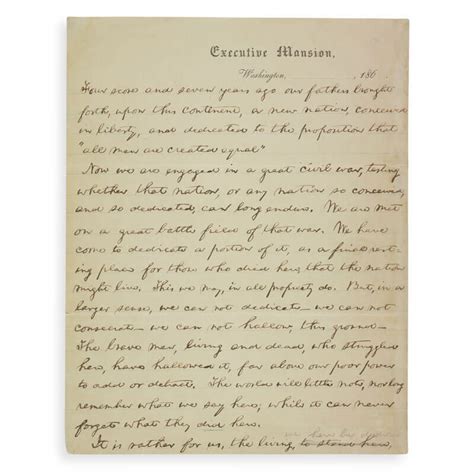 Executive Mansion,
Washington, , 186 .
Four score and seven years ago our fathers brought
forth, upon this continent, a new nation, conceived
in liberty, and dedicated to the proposition that
"all men are created equal"
Now we are engaged in a great civil war, testing
whether that nation, or any nation so conceived,
and so dedicated, can long endure. We are met
on a great battle field of that war. We have
come to dedicate a portion of it, as a final rest-
ing place for those who died here, that the nation
might live. This we may, in all propriety do. But, in a
larger sense, we can not dedicate — we can not
consecrate — we can not hallow, this ground—
The brave men, living and dead, who struggled
here, have hallowed it, far above our poor power
to add or detract. The world will little note, nor long
remember what we say here; while it can never
forget what they did here.
It is rather for us, the living, to stand here,